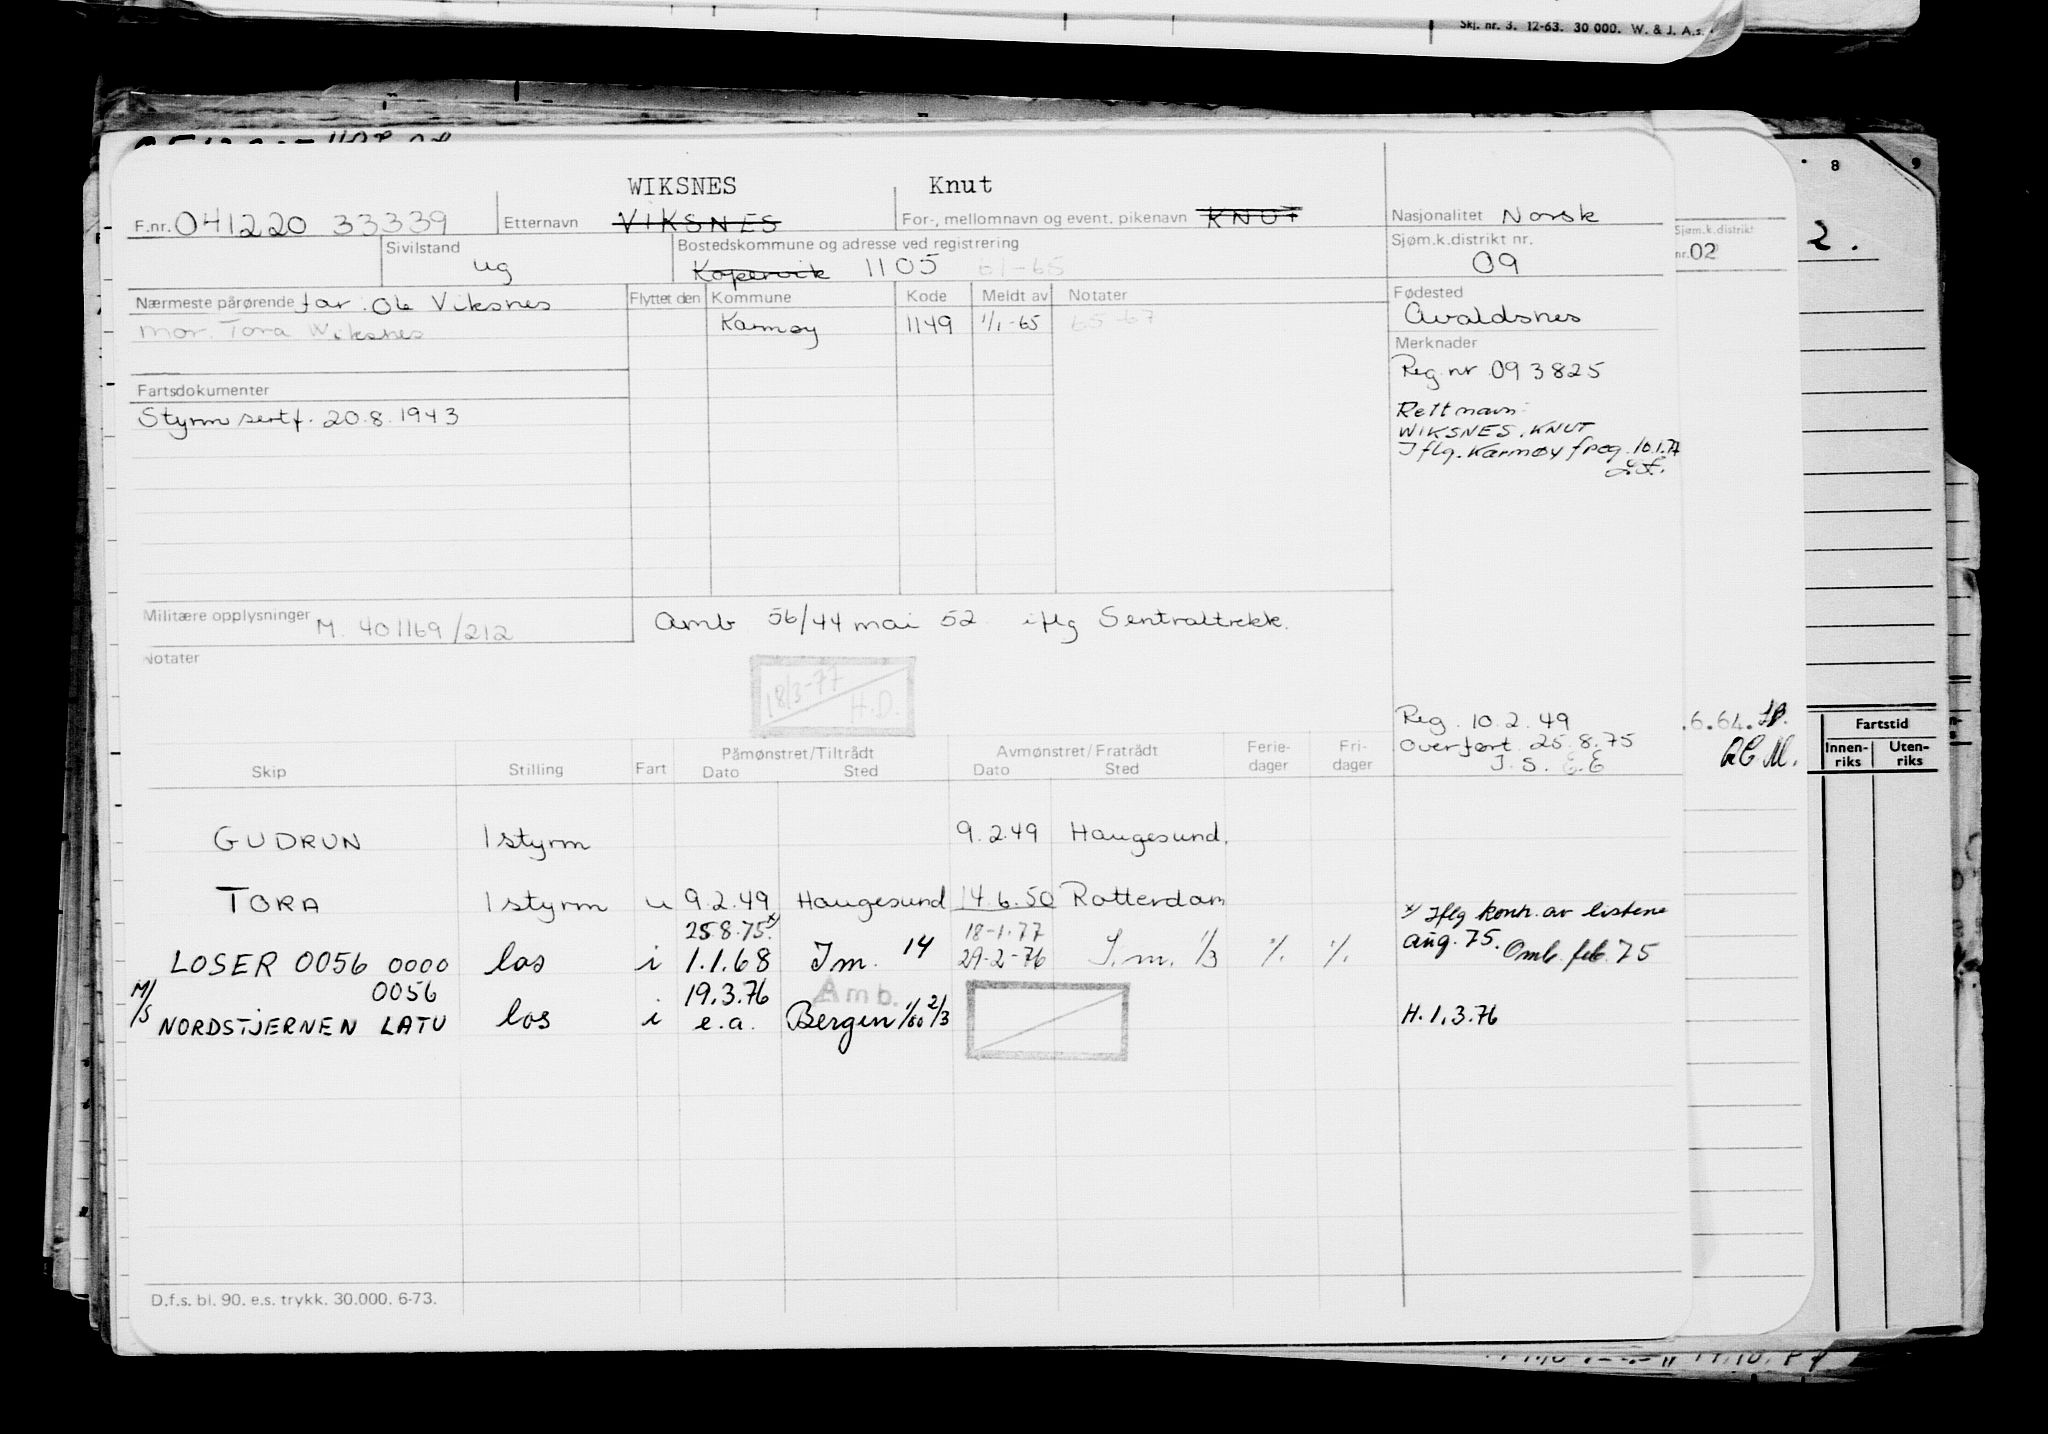 Skj. nr. 3. 12-63. 30 000. W. & J. A.s.
8 9
WIKSNES Knut
F.nr. 041220 33339 Etternavn VIKSNES For-, mellomnavn og event. pikenavn KNUT Nasjonalitet Norsk
Sivilstand ug Bostedskommune og adresse ved registrering Kopervik 1105 61-65 Sjøm.k.distrikt nr. 09
Sjøm.k.distrikt nr. 02
2.
Nærmeste pårørende far: Ole Viksnes Flyttet den Kommune Kode Meldt av Notater Fødested
mor. Tora Wiksnes Karmøy 1149 1/1-65 65-67 Avaldsnes
Merknader
Reg. nr 093825
Fartsdokumenter
Styrm sertf. 20.8.1943
Rett navn:
WIKSNES, KNUT
Iflg. Karmøy freg. 10.1.77
Militære opplysninger M. 401169/212 Amb 56/44 mai 52 iflg Sentraltrekk.
Notater
18/3-77 H.D.
Reg. 10.2.49
Overført 25.8.75
J.S. E.E
.6.64.
Fartstid
Innen-riks Uten-riks
Skip Stilling Fart Påmønstret/Tiltrådt Dato Sted Avmønstret/Fratrådt Dato Sted Ferie-dager Fri-dager
GUDRUN 1 styrm 9.2.49 Haugesund.
TORA 1 styrm u 9.2.49 Haugesund 14.6.50 Rotterdam
25.8.75 x) 18-1.77
x) Iflg kontr. av listene
aug. 75. Omb. feb. 75
LOSER 0056 0000 los i 1.1.68 Im. 14 29-2-76 I.m. 1/3 %. %.
M/S 0056 19.3.76 Amb.
NORDSTJERNEN LATU los i e.a. Bergen 1/60 2/3 H.1.3.76
D.f.s. bl. 90. e.s. trykk. 30.000. 6-73.